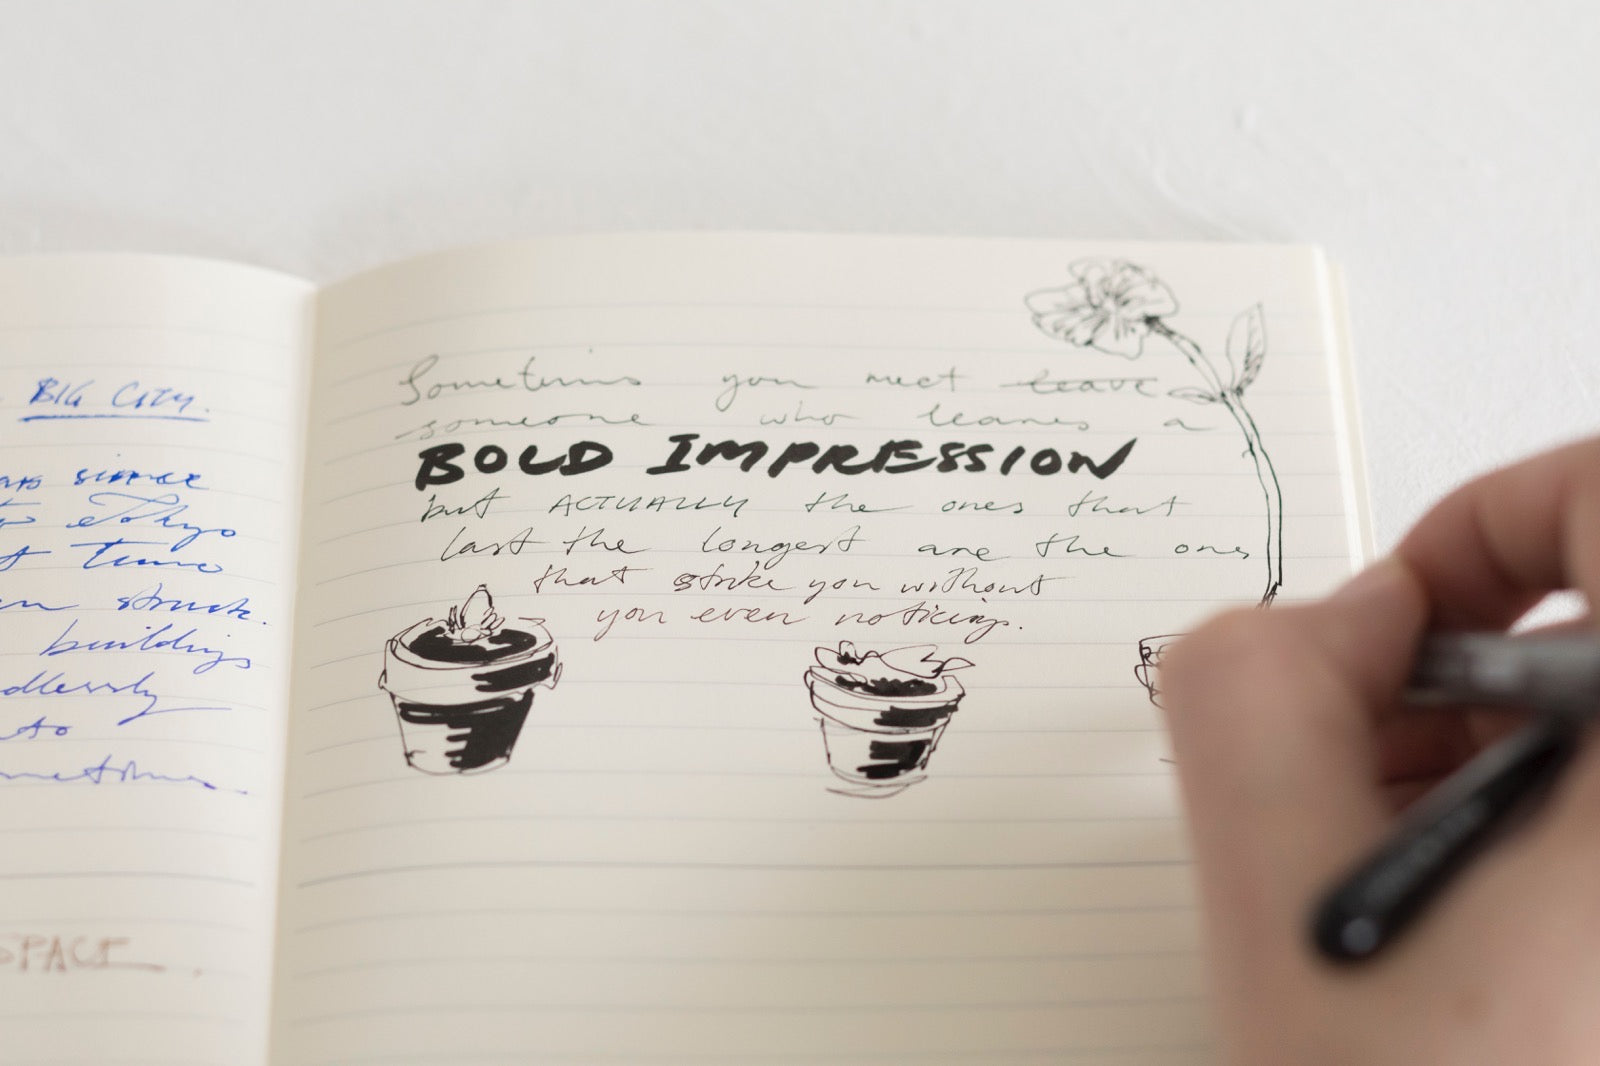 BIG CITY.
since
Tokyo
time
struck.
buildings
to
SPACE.
Sometimes you meet leave
someone who leaves a
BOLD IMPRESSION
but ACTUALLY the ones that
last the longest are the ones
that strike you without
you even noticing.